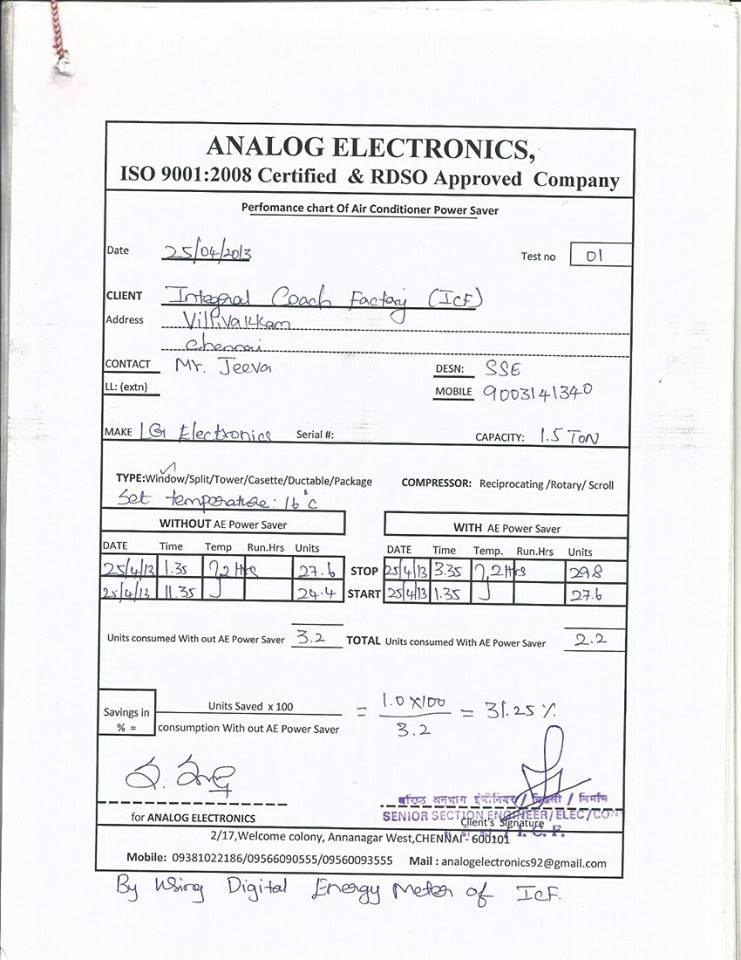 ANALOG ELECTRONICS,
ISO 9001:2008 Certified & RDSO Approved Company
Perfomance chart Of Air Conditioner Power Saver
Date 25/04/2013 Test no 01
CLIENT Integral Coach Factory (ICF)
Address Villivakkam
Chennai
CONTACT Mr. Jeeva DESN: SSE
LL: (extn) MOBILE 9003141340
MAKE LG Electronics Serial #: CAPACITY: 1.5 TON
TYPE:Window/Split/Tower/Casette/Ductable/Package COMPRESSOR: Reciprocating /Rotary/ Scroll
Set temperature: 16°C
WITHOUT AE Power Saver WITH AE Power Saver
DATE Time Temp Run.Hrs Units DATE Time Temp. Run.Hrs Units
25/4/13 1.35 2 Hrs 27.6 STOP 25/4/13 3.35 2 Hrs 29.8
25/4/13 11.35 24.4 START 25/4/13 1.35 27.6
Units consumed With out AE Power Saver 3.2 TOTAL Units consumed With AE Power Saver 2.2
Savings in % = Units Saved x 100 = 1.0 X 100 = 31.25 %
consumption With out AE Power Saver 3.2
वरिष्ठ अनुभाग इंजीनियर / बिजली / निर्माण
SENIOR SECTION ENGINEER/ELEC/CON
for ANALOG ELECTRONICS Client's Signature
I. C. F.
2/17,Welcome colony, Annanagar West,CHENNAI - 600101
Mobile: 09381022186/09566090555/09560093555 Mail : analogelectronics92@gmail.com
By Using Digital Energy Meter of ICF.